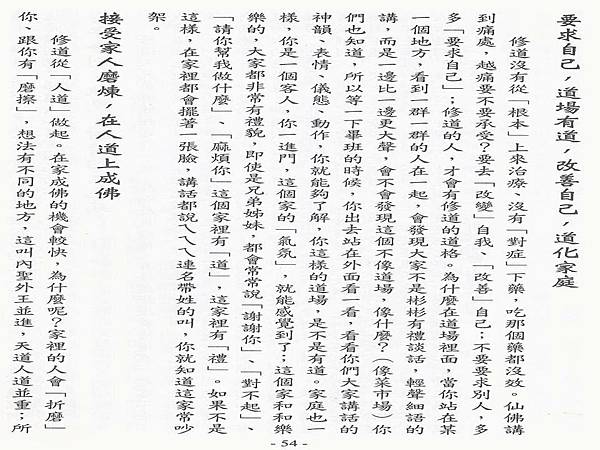 要求自己，道場有道，改善自己，道化家庭
修道沒有從「根本」上來治療、沒有「對症」下藥，吃那個藥都沒效。仙佛講
到痛處，越痛要不要承受？要去「改變」自我、「改善」自己；不要要求別人，多
多「要求自己」；修道的人，才會有修道的道格。為什麼在道場裡面，當你站在某
一個地方，看到一群一群的人在一起，會發現大家不是彬彬有禮談話，輕聲細語的
講，而是一邊比一邊更大聲，會不會發現這個不像道場，像什麼？（像菜市場）你
們也知道，所以等一下畢班的時候，你出去站在外面看一看，看看你們大家講話的
神韻、表情、儀態、動作，你就能夠了解，你這樣的道場，是不是有道。家庭也一
樣，你是一個客人，你一進門，這個家的「氣氛」，就能感覺到了；這個家和和樂
樂的，大家都非常有禮貌，即使是兄弟姊妹，都會常常說「謝謝你」、「對不起」、
「請你幫我做什麼」、「麻煩你」這個家裡有「道」，這家裡有「禮」。如果不是
這樣，在家裡都會擺著一張臉，講話都說ㄟㄟㄟ連名帶姓的叫，你就知道這家常吵
架。
接受家人磨煉，在人道上成佛
修道從「人道」做起。在家成佛的機會較快，為什麼呢？家裡的人會「折磨」
你、跟你有「磨擦」，想法有不同的地方，這叫內聖外王並進，天道人道並重；所
- 54 -